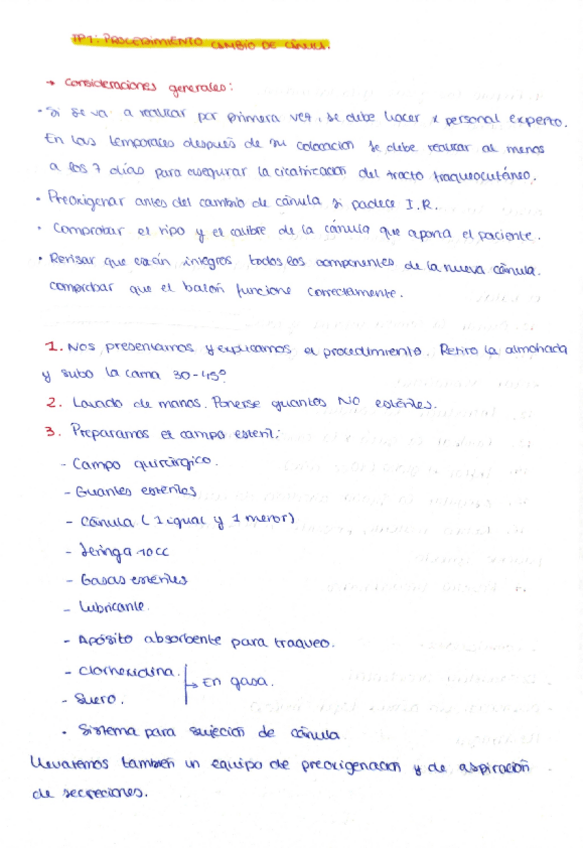 TP1: PROCEDIMIENTO CAMBIO DE CÁNULA.
→ Consideraciones generales:
- Si se va a realizar por primera vez, se debe hacer x personal experto.
En las temporales después de su colocación se debe realizar al menos
a los 7 días para asegurar la cicatrización del tracto traqueocutáneo.
· Preoxigenar antes del cambio de cánula si padece I.R.
· Comprobar el tipo y el calibre de la cánula que aporta el paciente.
· Revisar que están íntegros todos los componentes de la nueva cánula.
comprobar que el balón funcione correctamente.
1. Nos presentamos y explicamos el procedimiento. Retiro la almohada
y subo la cama 30-45º
2. Lavado de manos. Ponerse guantes NO estériles.
3. Preparamos el campo esteril:
- Campo quirúrgico.
- Guantes estériles
- Cánula (1 igual y 1 menor)
- Jeringa 10cc
- Gasas estériles
- Lubricante.
- Apósito absorbente para traqueo.
- Clorhexidina.
↳ En gasa.
- Suero.
· Sistema para sujeción de cánula
Llevaremos también un equipo de preoxigenación y de aspiración
de secreciones.